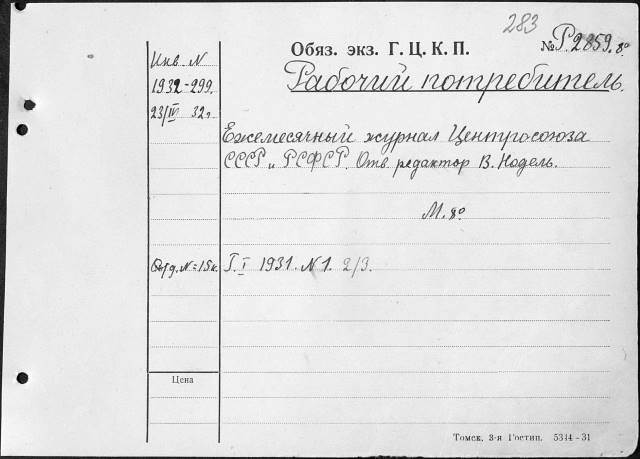 283
Обяз. экз. Г. Ц. К. П.
№ Р.2859. 8°
Инв. N
1932-299
23/III 32г.
Рабочий потребитель.
Ежемесячный журнал Центросоюза
СССР и РСФСР. Отв. редактор В. Нодель.
М. 8°
Отд. N = 15к.
Г. I 1931. N 1. 2/3.
Цена
Томск, 3-я Гостип. 5344-31